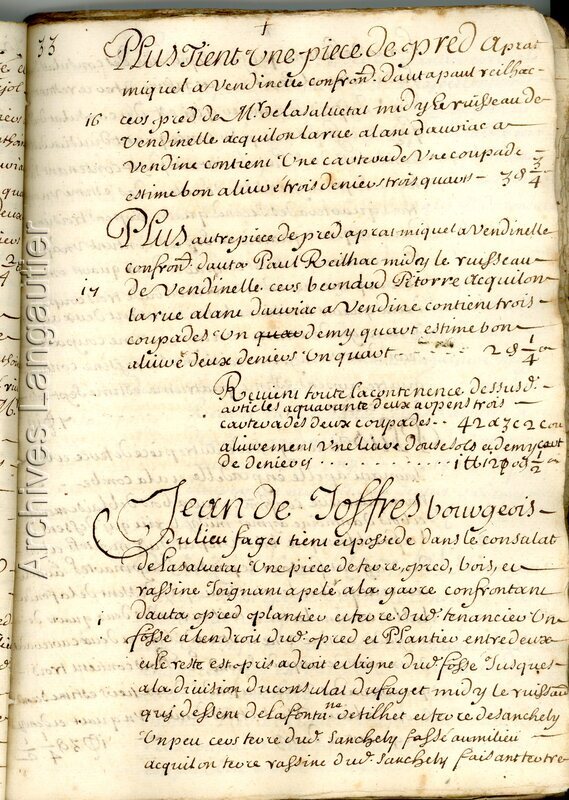 33
Plus tient une piece de pred a prat
miquel a Vendinelle confron.t d'auta paul reilhac
16 cers pred de Mr. de lasaluetat midy le ruisseau de
Vendinelle acquilon la rue alant d'auriac a
Vendine contient une carterade une coupade
estime bon alivré trois deniers trois quarts - 3 d 3/4
Plus autre piece de pred a prat miquel a Vendinelle
confron.t d'auta Paul Reilhac midy le ruisseau
17 de Vendinelle cers bernard Pitorre acquilon
la rue alant dauriac a Vendine contient trois
coupades un quar demy quart estime bon
alivré deux deniers un quart - 2 d 1/4
Revient toute la contenence dessusd.
articles a quarante deux arpens trois
carterades deux coupades .. 42 a 3 c 2 cou
alivrement une livre douse sols et demy
de deniers . . . . . . . . . 1 tt 12 s 0 d 1/2
Jean de Joffres bourgeois
du lieu faget tient et possede dans le consulat
de lasaluetat une piece de terre, pred, bois, et
rassine Joignant apelé a la garre confrontant
1 d'auta pred plantier et terre dud. tenancier un
fossé a lendroit dud. pred et Plantier entre deux
et le reste est pris a droit et ligne dud. fossé Jusques
a la division du consulat du faget midy le ruisseau
quy dessent de la fonta.ne de tilhet et terre de sanchely
un peu cers terre dud. Sanchely fossé au milieu
acquilon terre rassine dud. Sanchely faisant
Archives Langautier